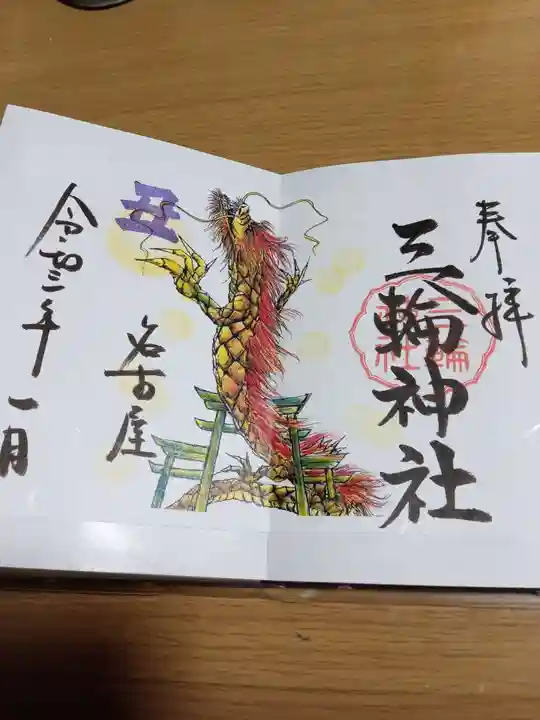 奉拝
三輪神社
三輪
神社
丑
名古屋
令和三年一月